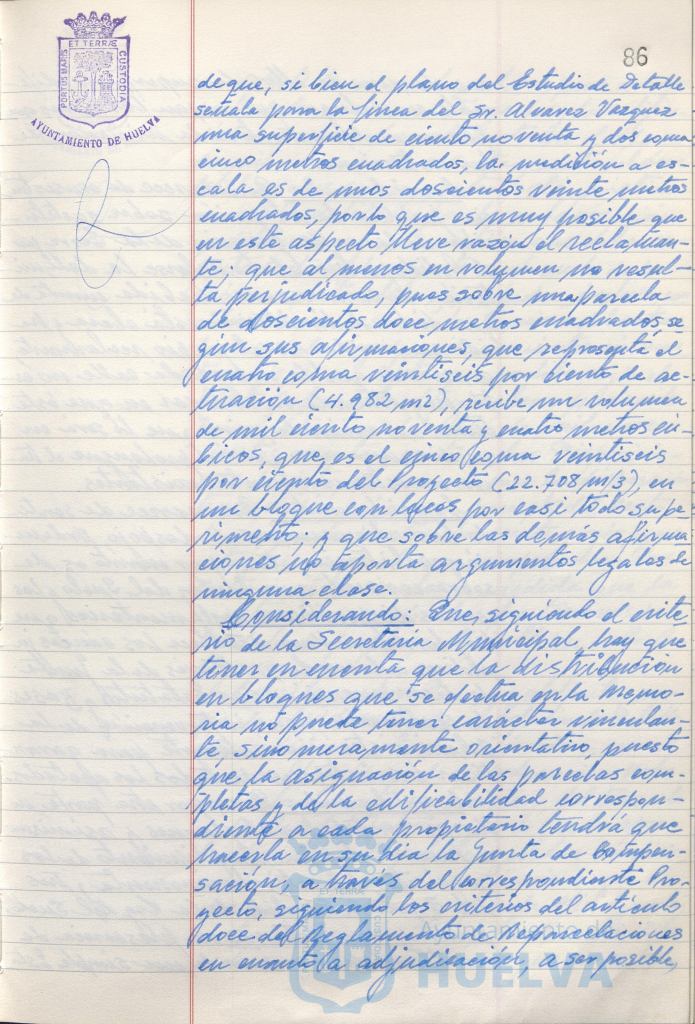 86
PORTUS MARIS ET TERRÆ CUSTODIA
AYUNTAMIENTO DE HUELVA
de que, si bien el plano del Estudio de Detalle
señala para la finca del Sr. Alvarez Vazquez
una superficie de ciento noventa y dos coma
cinco metros cuadrados, la medición a es-
cala es de unos doscientos veinte metros
cuadrados, por lo que es muy posible que
en este aspecto lleve razón el reclaman-
te; que al menos en volumen no resul-
ta perjudicado, pues sobre una parcela
de doscientos doce metros cuadrados, se-
gún sus afirmaciones, que representa el
cuatro coma veintiseis por ciento de ac-
tuación (4.982 m2), recibe un volumen
de mil ciento noventa y cuatro metros cú-
bicos, que es el cinco coma veintiseis
por ciento del Proyecto (22.708 m/3), en
un bloque con luces por casi todo su pe-
rimento; y que sobre las demás afirma-
ciones no aporta argumentos legales de
ninguna clase.
Considerando: Que, siguiendo el crite-
rio de la Secretaría Municipal, hay que
tener en cuenta que la distribución
en bloques que se efectua en la Memo-
ria no puede tener carácter vinculan-
te, sino meramente orientativo, puesto
que la asignación de las parcelas com-
pletas y de la edificabilidad correspon-
diente a cada propietario tendrá que
hacerla en su día la Junta de Compen-
sación, a través del correspondiente Pro-
yecto, siguiendo los criterios del artículo
doce del Reglamento de Reparcelaciones
en cuanto a adjudicación, a ser posible,
Ayuntamiento de
HUELVA